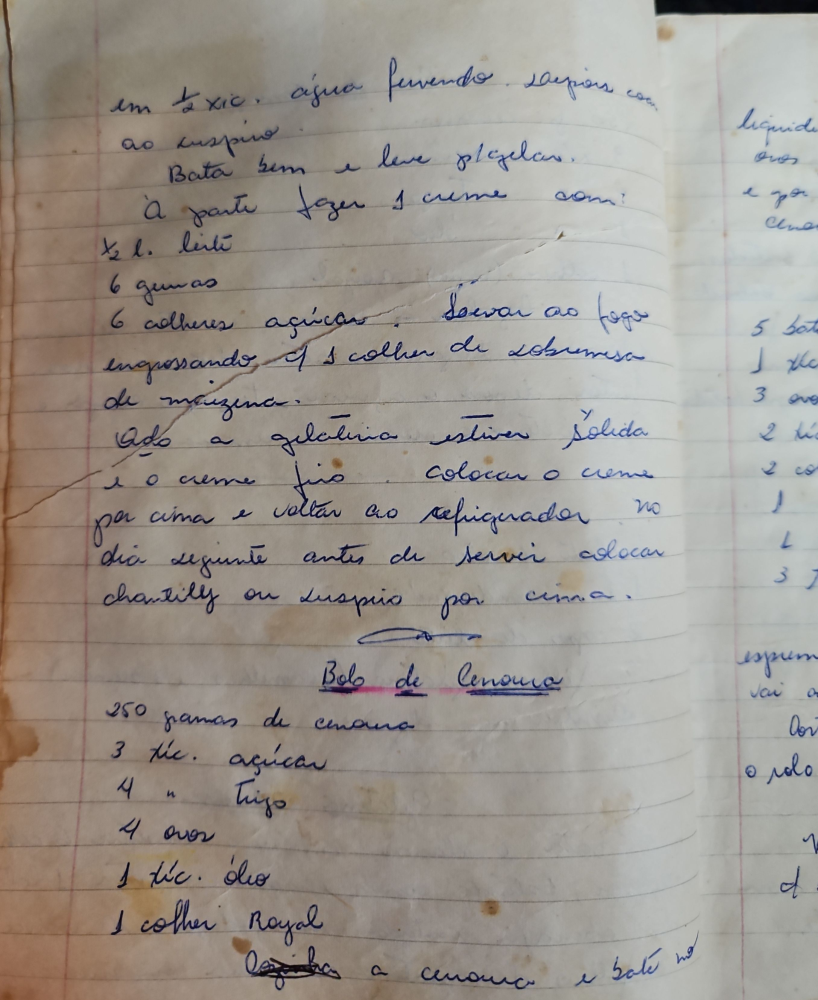 em ½ xic. água fervendo. Depois
ao suspiro.
Bata bem e leve p/gelar.
À parte fazer 1 creme com:
½ l. leite
6 gemas
6 colheres açúcar. Levar ao fogo
engrossando c/ 1 colher de sobremesa
de maizena.
Qdo a gelatina estiver sólida
e o creme frio. colocar o creme
por cima e voltar ao refrigerador no
dia seguinte antes de servir colocar
chantilly ou suspiro por cima.
Bolo de Cenoura
250 gramas de cenoura
3 xíc. açúcar
4 " trigo
4 ovos
1 xíc. óleo
1 colher Royal
a cenoura e bate no
liquid
ovos
e por
ceno
5 bat
1 xíc
3 ovo
2 xí
2 co
1
1
3
esprem
vai a
o rolo